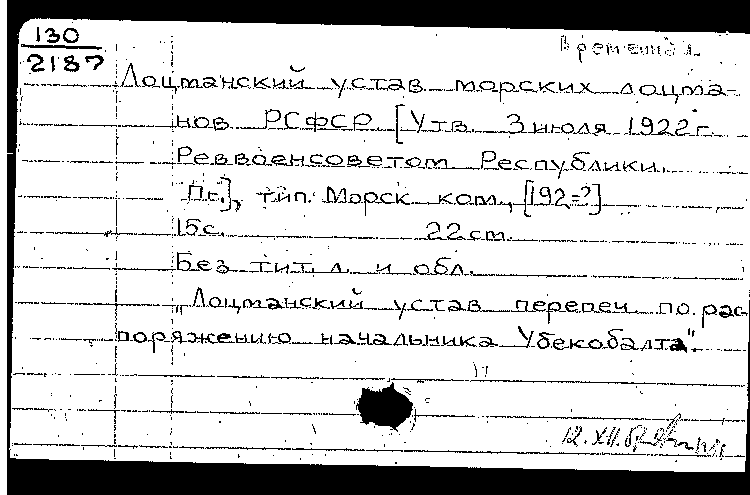 130
2187
Временная
Лоцманский устав морских лоцма-
нов РСФСР [Утв. 3 июля 1922 г.
Реввоенсоветом Республики.
Пг.], тип. Морск. ком., [192-?]
15 с. 22 cm.
Без тит. л. и обл.
„Лоцманский устав перепеч. по рас
поряжению начальника Убекобалта".
12.XII.